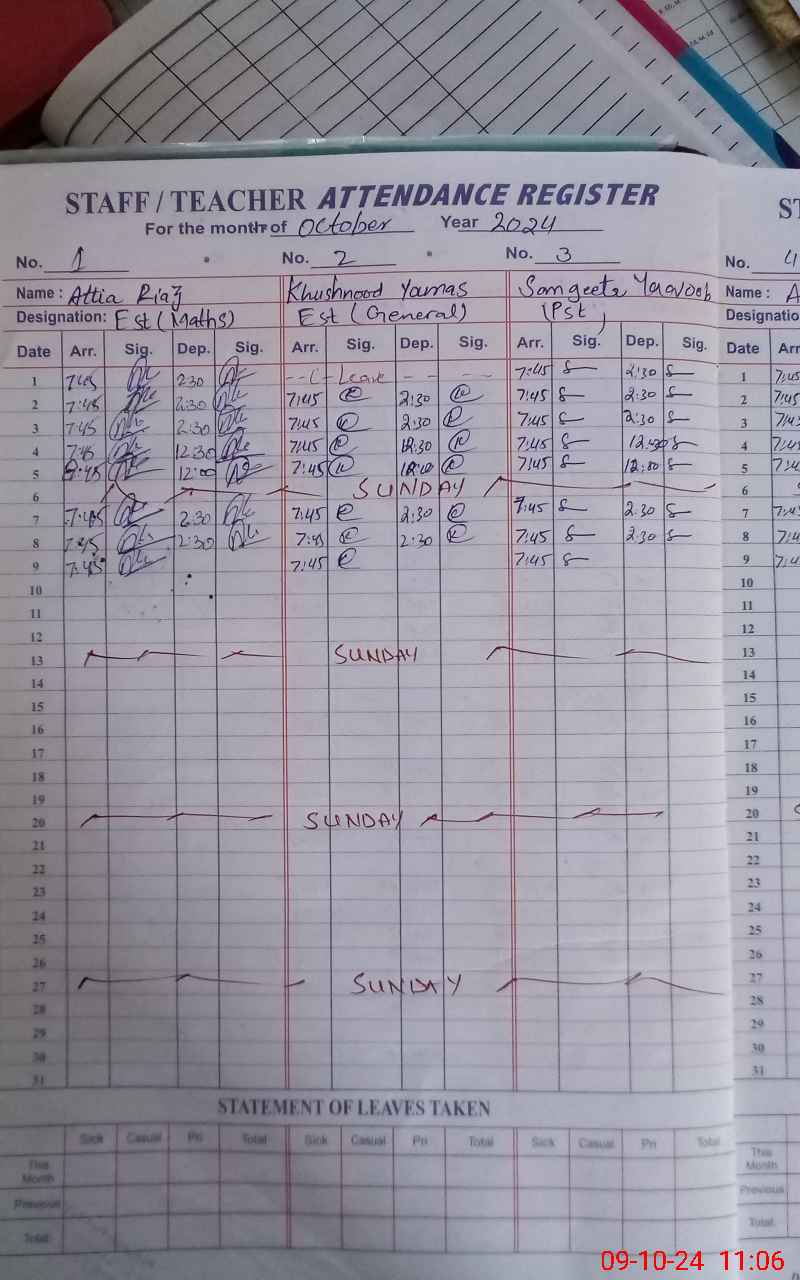 STAFF / TEACHER ATTENDANCE REGISTER
For the month of October Year 2024
No. 1 No. 2 No. 3 No. 4
Name : Attia Riaz Khushnood Younas Sangeeta Yaqoob Name : A
Designation: Est (Maths) Est (General) (Pst) Designatio
Date Arr. Sig. Dep. Sig. Arr. Sig. Dep. Sig. Arr. Sig. Dep. Sig. Date Arr
1 7:45 2:30 Leave 7:45 2:30 1 7:45
2 7:45 2:30 7:45 2:30 7:45 2:30 2 7:45
3 7:45 2:30 7:45 2:30 7:45 2:30 3 7:45
4 7:45 12:30 7:45 12:30 7:45 12:30 4 7:45
5 7:45 12:00 7:45 7:45 5
6 SUNDAY 6
7 7:45 2:30 7:45 2:30 7:45 2:30 7
8 7:45 2:30 7:45 2:30 7:45 2:30 8
9 7:45 7:45 7:45 9
10 10
11 11
12 12
13 SUNDAY 13
14 14
15 15
16 16
17 17
18 18
19 19
20 SUNDAY 20
21 21
22 22
23 23
24 24
25 25
26 26
27 SUNDAY 27
28 28
29 29
30 30
31 31
STATEMENT OF LEAVES TAKEN
Sick Casual Pri Total Sick Casual Pri Total Sick Casual Pri Total
This Month This Month
Previous Previous
Total Total
09-10-24 11:06